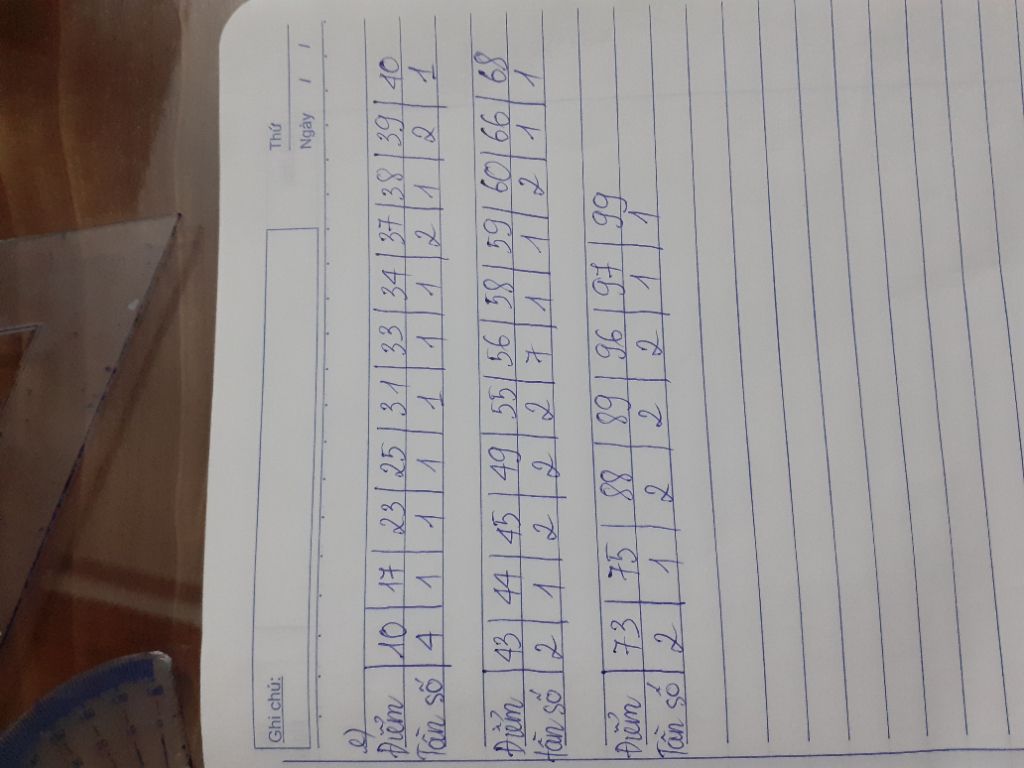 Ghi chú:
Thứ
Ngày / /
e)
Điểm | 10 | 17 | 23 | 25 | 31 | 33 | 34 | 37 | 38 | 39 | 40
Tần số | 4 | 1 | 1 | 1 | 1 | 1 | 1 | 2 | 1 | 2 | 1
Điểm | 43 | 44 | 45 | 49 | 55 | 56 | 58 | 59 | 60 | 66 | 68
Tần số | 2 | 1 | 2 | 2 | 2 | 7 | 1 | 1 | 2 | 1 | 1
Điểm | 73 | 75 | 88 | 89 | 96 | 97 | 99
Tần số | 2 | 1 | 2 | 2 | 2 | 1 | 1